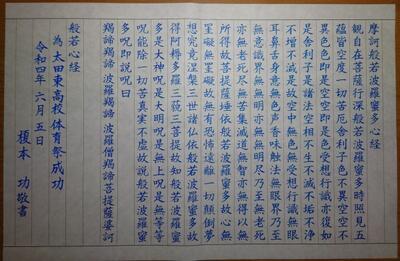 摩訶般若波羅蜜多心経
観自在菩薩行深般若波羅蜜多時照見五
蘊皆空度一切苦厄舎利子色不異空空不
異色色即是空空即是色受想行識亦復如
是舎利子是諸法空相不生不滅不垢不浄
不増不減是故空中無色無受想行識無眼
耳鼻舌身意無色声香味触法無眼界乃至
無意識界無無明亦無無明尽乃至無老死
亦無老死尽無苦集滅道無智亦無得以無
所得故菩提薩埵依般若波羅蜜多故心無
罣礙無罣礙故無有恐怖遠離一切顛倒夢
想究竟涅槃三世諸仏依般若波羅蜜多故
得阿耨多羅三藐三菩提故知般若波羅蜜
多是大神呪是大明呪是無上呪是無等等
呪能除一切苦真実不虚故説般若波羅蜜
多呪即説呪曰
羯諦羯諦 波羅羯諦 波羅僧羯諦 菩提薩婆訶
般若心経
為 太田東高校体育祭成功
令和四年 六月 五日
榎本 功敬書